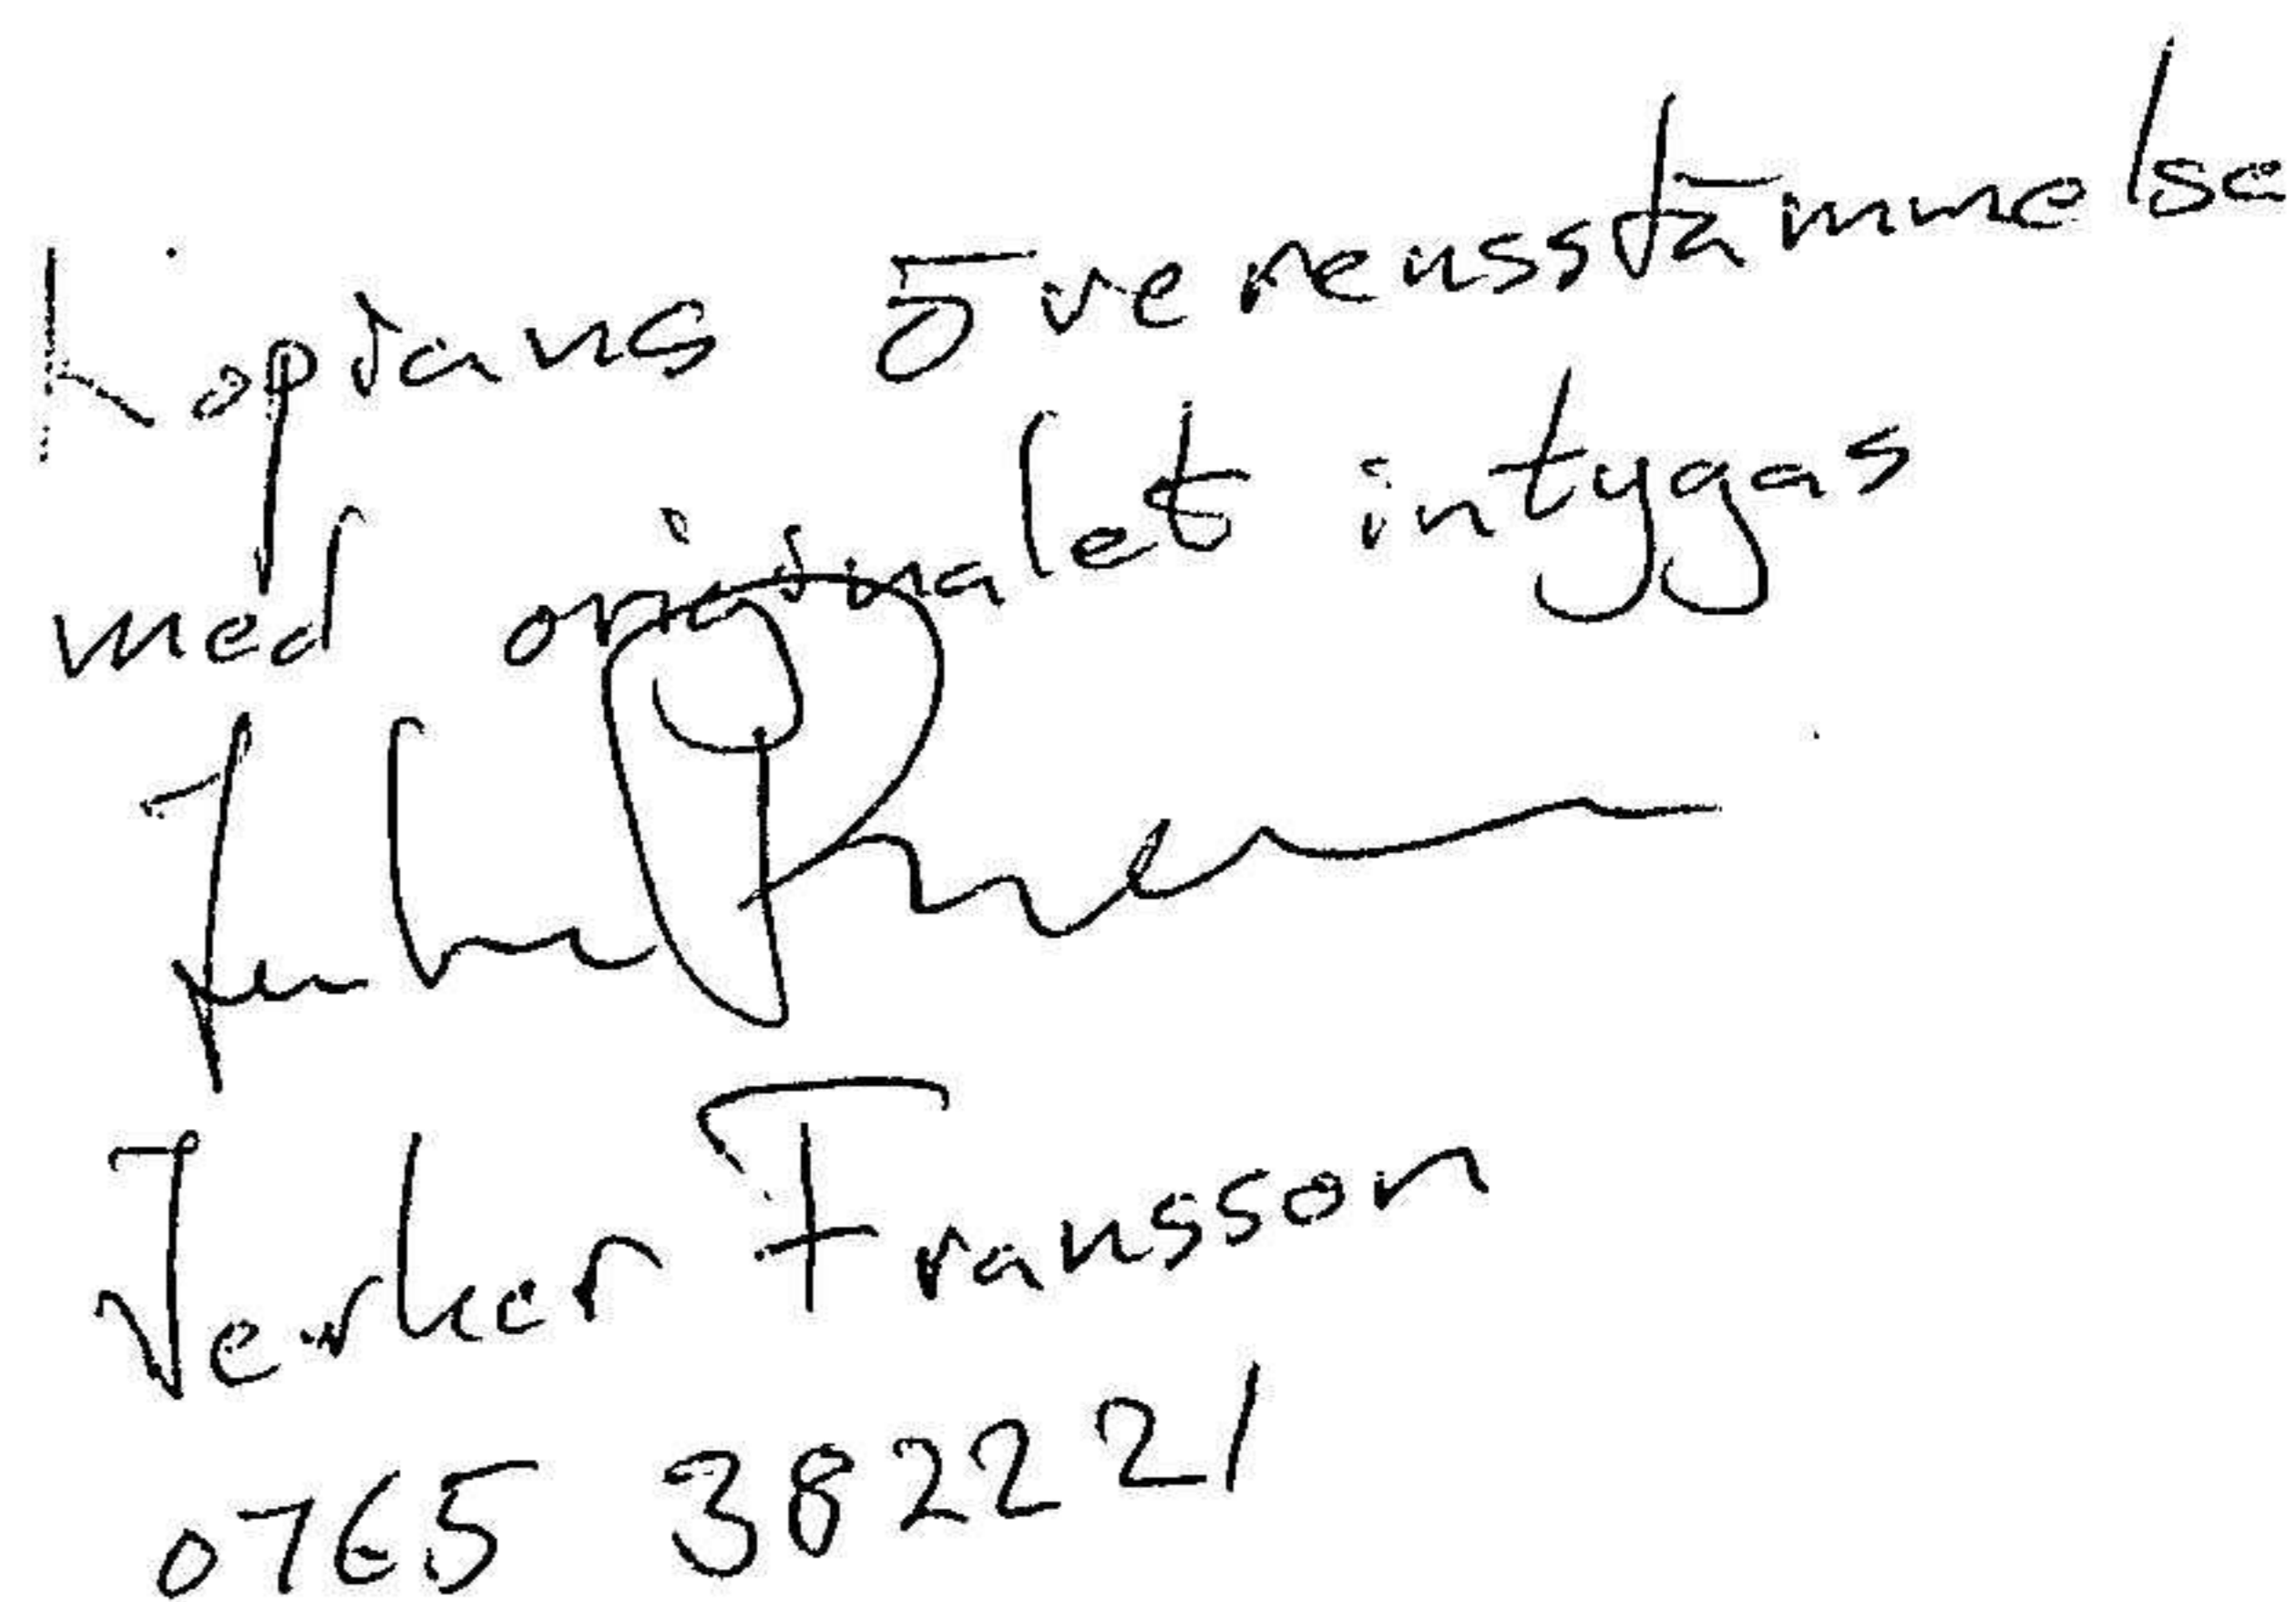 Kopians överensstämmelse
med originalet intygas
Jerker Fransson
0765 382221